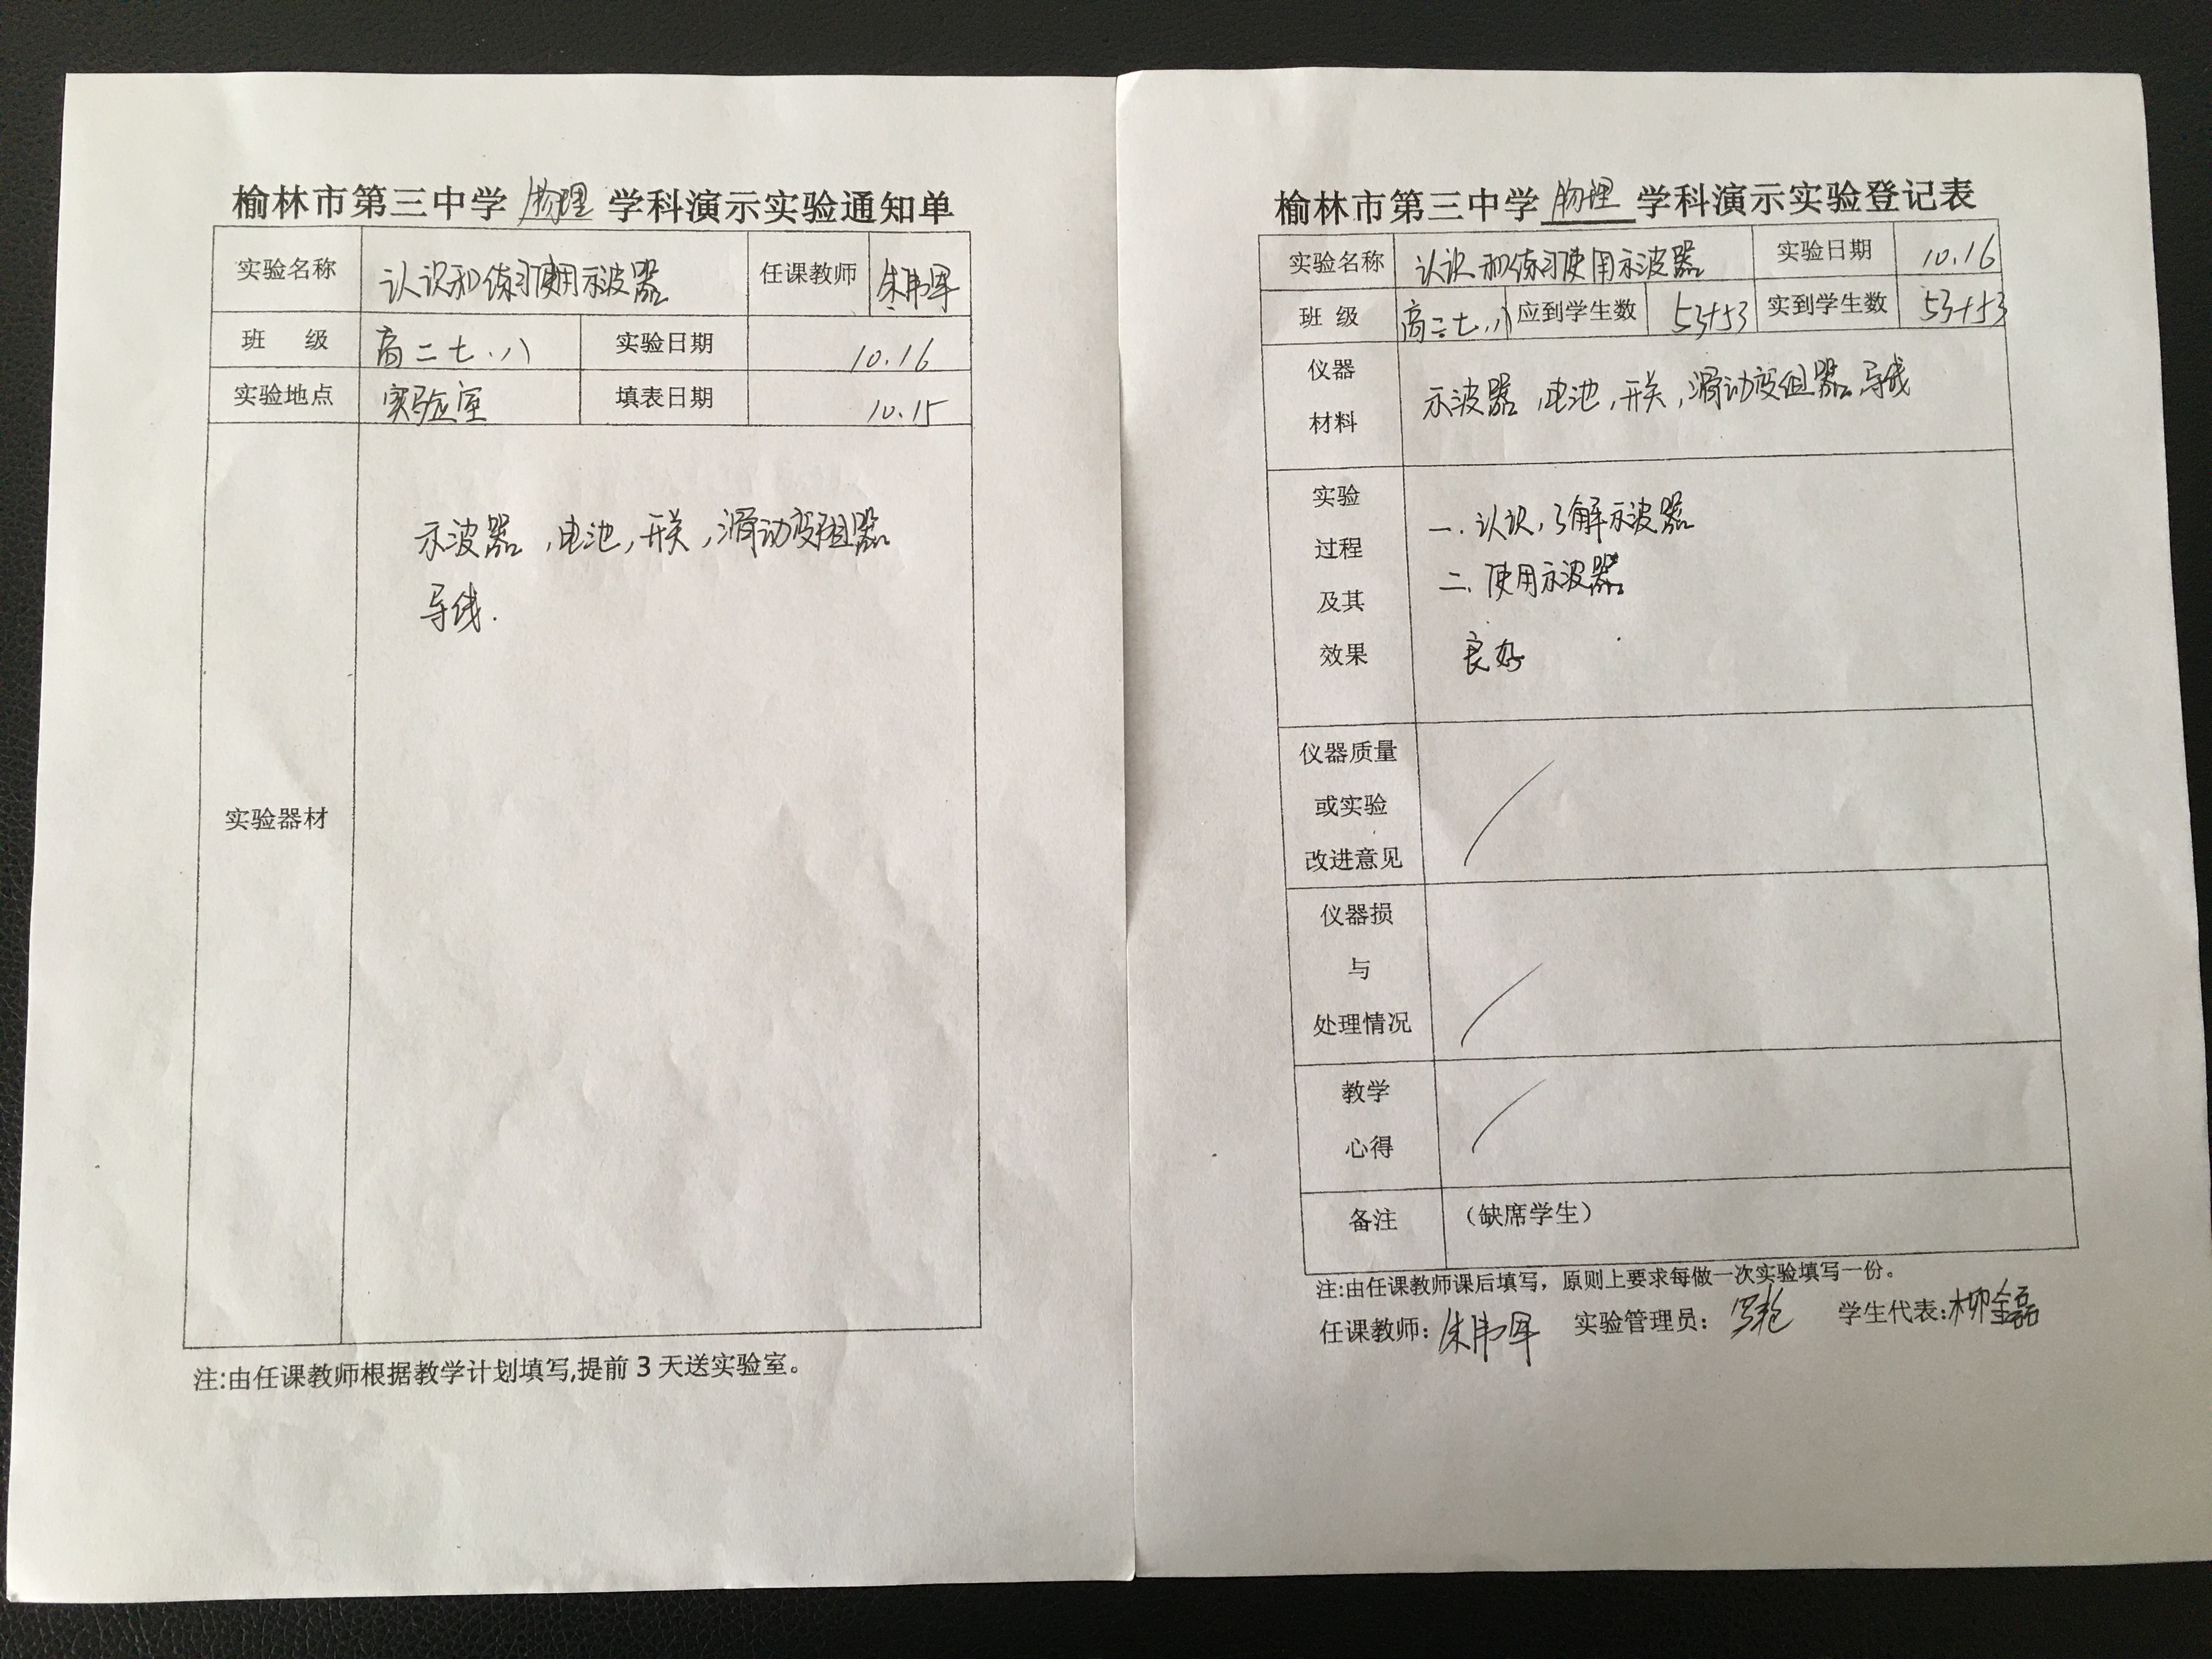 榆林市第三中学 物理 学科演示实验通知单
实验名称 认识和练习使用示波器 任课教师 朱韦军
班 级 高二七、八 实验日期 10.16
实验地点 实验室 填表日期 10.15
实验器材
示波器,电池,开关,滑动变阻器
导线.
注:由任课教师根据教学计划填写,提前3天送实验室。
榆林市第三中学 物理 学科演示实验登记表
实验名称 认识和练习使用示波器 实验日期 10.16
班 级 高二七、八 应到学生数 53+53 实到学生数 53+53
仪器
材料
示波器,电池,开关,滑动变阻器.导线
实验
过程
及其
效果
一.认识,了解示波器
二、使用示波器
良好
仪器质量
或实验
改进意见
仪器损
与
处理情况
教学
心得
备注 (缺席学生)
注:由任课教师课后填写,原则上要求每做一次实验填写一份。
任课教师: 朱韦军 实验管理员: 学生代表:柳金磊